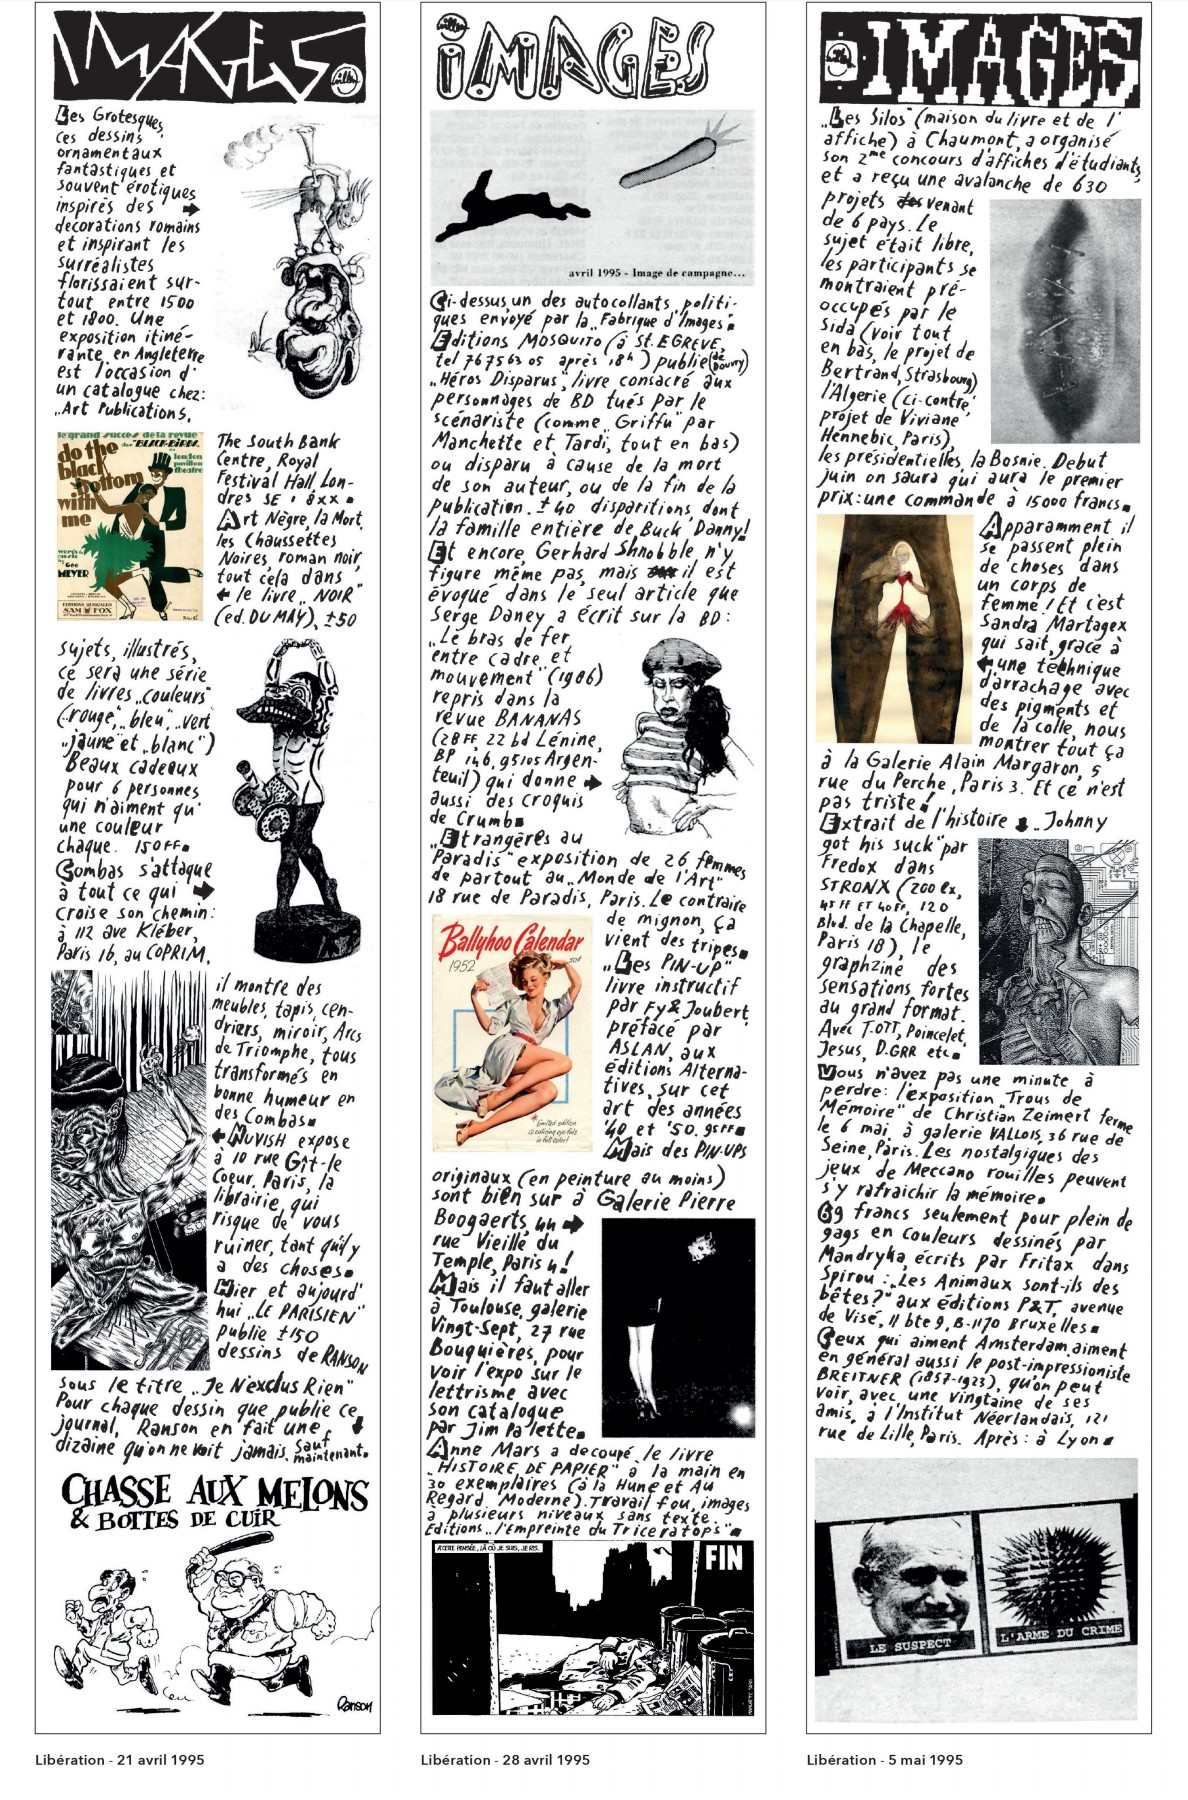 IMAGES
Les Grotesques,
ces dessins
ornamentaux
fantastiques et
souvent érotiques
inspirés des
decorations romains
et inspirant les
surréalistes
florissaient sur-
tout entre 1500
et 1800. Une
exposition itiné-
rante en Angleterre
est l'occasion d'
un catalogue chez:
„Art Publications,
le grand succès de la revue
des "BLACK-BIRDS
do the
black
bottom
with
me
london
pavilion
theatre
words &
music
by Geo
MEYER
EDITIONS MUSICALES
SAM FOX
The South Bank
Centre, Royal
Festival Hall, Lon-
dres SE 1 8XX
Art Nègre, la Mort,
les Chaussettes
Noires, roman noir,
tout cela dans
le livre „NOIR"
(ed. DU MAY), ±50
sujets, illustrés,
ce sera une série
de livres „couleurs"
(„rouge", „bleu", „vert",
„jaune" et „blanc")
Beaux cadeaux
pour 6 personnes
qui n'aiment qu'
une couleur
chaque. 150FF.
Combas s'attaque
à tout ce qui
croise son chemin:
à 112 ave Kléber,
Paris 16, au COPRIM,
il montre des
meubles, tapis, cen-
driers, miroir, Arcs
de Triomphe, tous
transformés en
bonne humeur en
des Combas
NUVISH expose
à 10 rue Gît-le
Coeur, Paris, la
librairie, qui
risque de vous
ruiner, tant qu'il y
a des choses.
Hier et aujourd'
hui „LE PARISIEN"
publie ±150
dessins de RANSON
sous le titre „Je N'exclus Rien"
Pour chaque dessin que publie ce
journal, Ranson en fait une
dizaine qu'on ne voit jamais. Sauf
maintenant.
CHASSE AUX MELONS
& BOTTES DE CUIR
Ranson
Libération - 21 avril 1995
IMAGES
avril 1995 - Image de campagne...
Ci-dessus, un des autocollants politi-
ques envoyé par la „Fabrique d'Images"
Editions MOSQUITO (à St. EGREVE,
tel 76756305 après 18h) publie (de Douvry)
„Héros Disparus", livre consacré aux
personnages de BD tués par le
scénariste (comme „Griffu" par
Manchette et Tardi, tout en bas)
ou disparu à cause de la mort
de son auteur, ou de la fin de la
publication. ±40 disparitions, dont
la famille entière de Buck Danny!
Et encore, Gerhard Shnobble n'y
figure même pas, mais il est
évoqué dans le seul article que
Serge Daney a écrit sur la BD:
„Le bras de fer
entre cadre et
mouvement" (1986)
repris dans la
revue BANANAS
(28FF, 22 bd Lénine,
BP 146, 95105 Argen-
teuil) qui donne
aussi des croquis
de Crumb
„Etrangères au
Paradis" exposition de 26 femmes
de partout au „Monde de l'Art"
18 rue de Paradis, Paris. Le contraire
de mignon, ça
vient des tripes.
Ballyhoo Calendar
1952
50¢
Limited edition
12 enticing eye-fuls
in full color!
„Les PIN-UP"
livre instructif
par Fy & Joubert,
préfacé par
ASLAN, aux
éditions Alterna-
tives, sur cet
art des années
'40 et '50. 95FF
Mais des PIN-UPS
originaux (en peinture au moins)
sont bien sur à Galerie Pierre
Boogaerts, un
rue Vieille du
Temple, Paris 4!
Mais il faut aller
à Toulouse, galerie
Vingt-Sept, 27 rue
Bouquières, pour
voir l'expo sur le
lettrisme avec
son catalogue
par Jim Palette.
Anne Mars a decoupé le livre
„HISTOIRE DE PAPIER" à la main en
30 exemplaires (à la Hune et Au
Regard Moderne). Travail fou, images
à plusieurs niveaux sans texte.
Editions „l'Empreinte du Triceratops"
A CETTE PENSÉE, LÀ OÙ JE SUIS, JE RIS.
FIN
Libération - 28 avril 1995
IMAGES
„Les Silos" (maison du livre et de l'
affiche) à Chaumont, a organisé
son 2me concours d'affiches d'étudiants,
et a reçu une avalanche de 630
projets venant
de 6 pays. Le
sujet était libre,
les participants se
montraient pré-
occupés par le
Sida (voir tout
en bas, le projet de
Bertrand, Strasbourg)
l'Algerie (ci-contre,
projet de Viviane
Hennebic, Paris),
les présidentielles, la Bosnie. Debut
juin on saura qui aura le premier
prix: une commande à 15000 francs.
Apparamment il
se passent plein
de choses dans
un corps de
femme! Et c'est
Sandra Martagex
qui sait, grace à
une téchnique
d'arrachage avec
des pigments et
de la colle, nous
montrer tout ça
à la Galerie Alain Margaron, 5
rue du Perche, Paris 3. Et ce n'est
pas triste!
Extrait de l'histoire „Johnny
got his suck" par
Fredox dans
STRONX (200 ex,
45FF ET 40FF, 120
Blvd. de la Chapelle,
Paris 18), le
graphzine des
sensations fortes
au grand format.
Avec T.OTT, Poincelet,
Jesus, D.GRR etc.
Vous n'avez pas une minute à
perdre: l'exposition „Trous de
Mémoire" de Christian Zeimert ferme
le 6 mai, à galerie VALLOIS, 36 rue de
Seine, Paris. Les nostalgiques des
jeux de Meccano rouillés peuvent
s'y rafraichir la mémoire.
69 francs seulement pour plein de
gags en couleurs dessinés par
Mandryka, écrits par Fritax dans
Spirou: „Les Animaux sont-ils des
bêtes?" aux éditions P&T, avenue
de Visé, 11 bte 9, B-1170 Bruxelles
Ceux qui aiment Amsterdam, aiment
en général aussi le post-impressioniste
BREITNER (1857-1923), qu'on peut
voir, avec une vingtaine de ses
amis, a l'Institut Néerlandais, 121
rue de Lille, Paris. Après: à Lyon
LE SUSPECT
L'ARME DU CRIME
Libération - 5 mai 1995